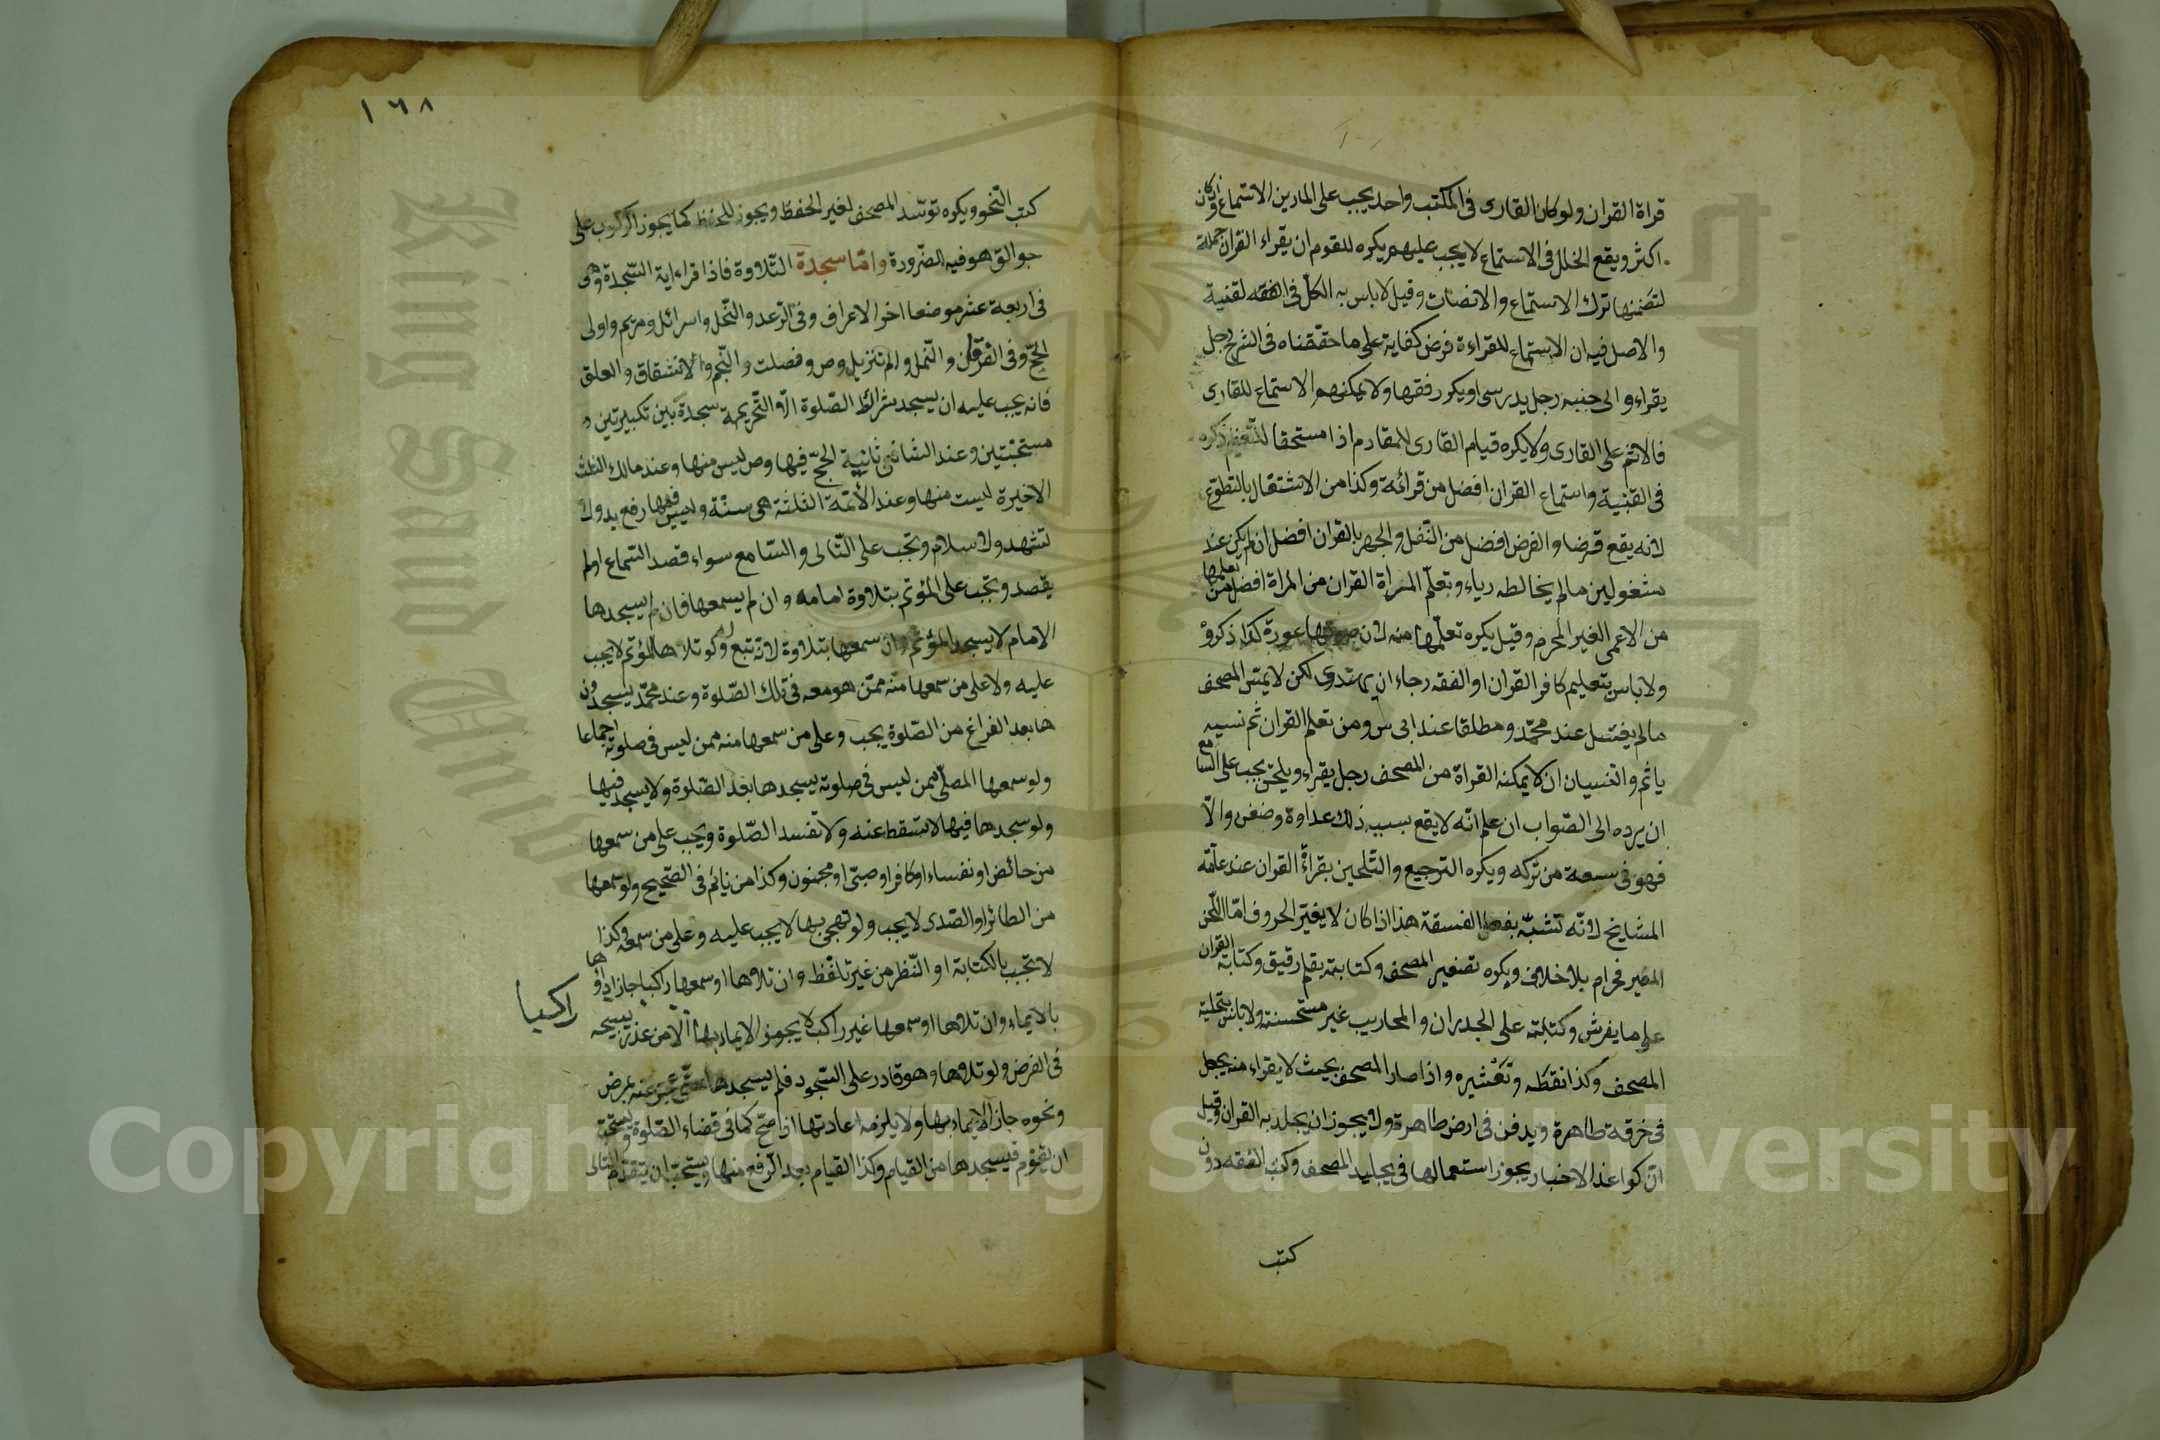 قراة القران ولو كان القارى فى المكتب واحد يجب على المارين الاستماع وان كان
اكثر ويقع الخلل فى الاستماع لا يجب عليهم يكره للقوم ان يقراء القران جملة
لتضمنها ترك الاستماع والانصات وقيل لا باس به الكل فى القنية
والاصل فيه ان الاستماع للقراءة فرض كفاية على ما حققناه فى الشرح رجل
يقراء والى جنبه رجل يدرس او يكرر فقها ولا يمكنهم الاستماع للقارى
فالاثم على القارى ولا يكره قيام القارى للقادم اذا مستحقا للتعظيم ذكره
فى القنية واستماع القران افضل من قرائة وكذا من الاشتغال بالتطوع
لانه يقع فرضا والفرض افضل من النفل والجهر بالقران افضل ان لم يكن عند
مشغولين ما لم يخالطه رياء وتعلم المراة القران من المراة افضل من تعلمها
من الاعمى الغير المحرم وقيل يكره تعلمها منه لان صوتها عورة كذا ذكروْ
ولا باس بتعليم كافر القران او الفقه رجاء ان يهتدى لكن لا يمس المصحف
ما لم يغتسل عند محمد ومطلقا عند ابى س ومن تعلم القران ثم نسيه
ياثم والنسيان ان لا يمكنه القراة من المصحف رجل يقراء ويلحن يجب على السامع
ان يرده الى الصواب ان علم انه لا يقع بسببه ذلك عداوة وضغن والا
فهو فى سعة من تركه ويكره الترجيع والتلحين بقراءة القران عند عامة
المشايخ لانه تشبه بفعل الفسقة هذا اذا كان لا يغير الحروف اما اللحن
المغير فحرام بلا خلاف ويكره تصغير المصحف وكتابته بقلم رقيق وكتابة القران
على ما يفرش وكتابته على الجدران والمحاريب غير مستحسنة ولا باس بتحلية
المصحف وكذا نقطه وتعشيره واذا صار المصحف بحيث لا يقراء منه يجعل
فى خرقة طاهرة ويدفن فى ارض طاهرة ولا يجوز ان يجلد به القران وقيل
ان كواغذ الاخبار يجوز استعمالها فى تجليد المصحف وكتب الفقه دون
كتب
١٦٨
كتب النحو ويكره توسد المصحف لغير الحفظ ويجوز للحفظ كما يجوز الركوب على
جوالق هو فيه للضرورة واما سجدة التلاوة فاذا قراء اية السجدة وهى
فى اربعة عشر موضعا اخر الاعراف وفى الرعد والنحل واسرائل ومريم واولى
الحج وفى الفرقان والنمل والم تنزيل وص وفصلت والنجم والانشقاق والعلق
فانه يجب عليه ان يسجد بشرائط الصلوة الا التحريمة سجدة بين تكبيرتين و
مستحبتين وعند الشافعى ثانية الحج فيها وص ليس منها وعند مالك الثلث
الاخيرة ليست منها وعند الائمة الثلثة هى سنة وليس فيها رفع يد ولا
تشهد ولا سلام وتجب على التالى والسامع سواء قصد السماع او لم
يقصد وتجب على المؤتم بتلاوة امامه وان لم يسمعها فان لم يسجدها
الامام لا يسجد المؤتم وان سمعها بتلاوة لانه تبع له ولو تلاها المؤتم لا يجب
عليه ولا على من سمعها منه ممن هو معه فى تلك الصلوة وعند محمد يسجدون
ها بعد الفراغ من الصلوة يجب وعلى من سمعها منه ممن ليس فى صلوته اجماعا
ولو سمعها المصلى ممن ليس فى صلوته يسجدها بعد الصلوة ولا يسجد فيها
ولو سجدها فيها لا تسقط عنه ولا تفسد الصلوة ويجب على من سمعها
من حائض او نفساء او كافر او صبى او مجنون وكذا من نائم فى الصحيح ولو سمعها
من الطائر او الصدى لا يجب ولو تهجى بها لا يجب عليه وعلى من سمعه وكذا
لا تجب بالكتابة او النظر من غير تلفظ وان تلاها او سمعها راكبا جاز اداؤها
راكبا
بالايماء وان تلاها او سمعها غير راكب لا يجوز الايماء بها الا من عذر يبيحه
فى الفرض ولو تلاها وهو قادر على السجود فلم يسجدها حتى عجز عنه بمرض
ونحوه جاز الايماء بها ولا يلزمه اعادتها اذا صح كما فى قضاء الصلوة ويستحب
ان يقوم فيسجدها من القيام وكذا القيام بعد الرفع منها ويستحب ان يتقدم التالى
King Saud University
Copyright © King Saud University
1957